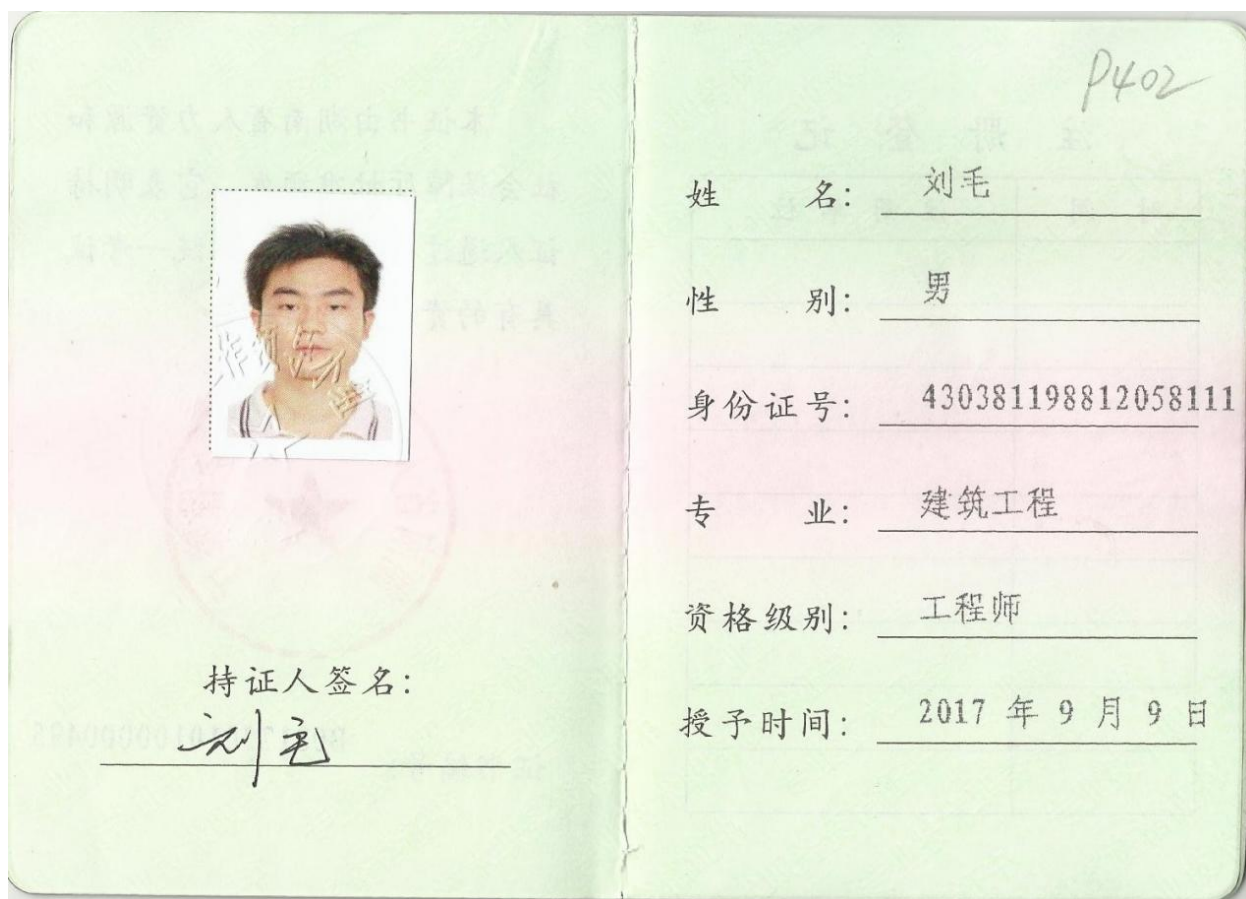 持证人签名:
刘毛
P402
姓 名: 刘毛
性 别: 男
身份证号: 430381198812058111
专 业: 建筑工程
资格级别: 工程师
授予时间: 2017 年 9 月 9 日